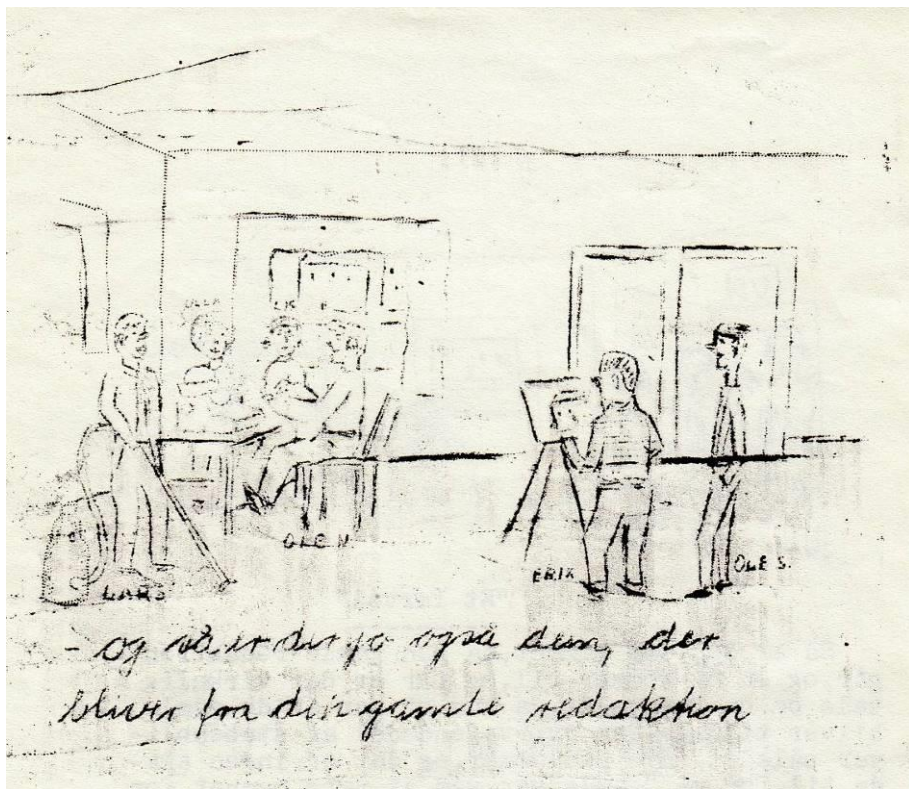 ULLA
OLE N
LARS
ERIK
OLE S.
- og så er der jo også dem, der
bliver fra den gamle redaktion